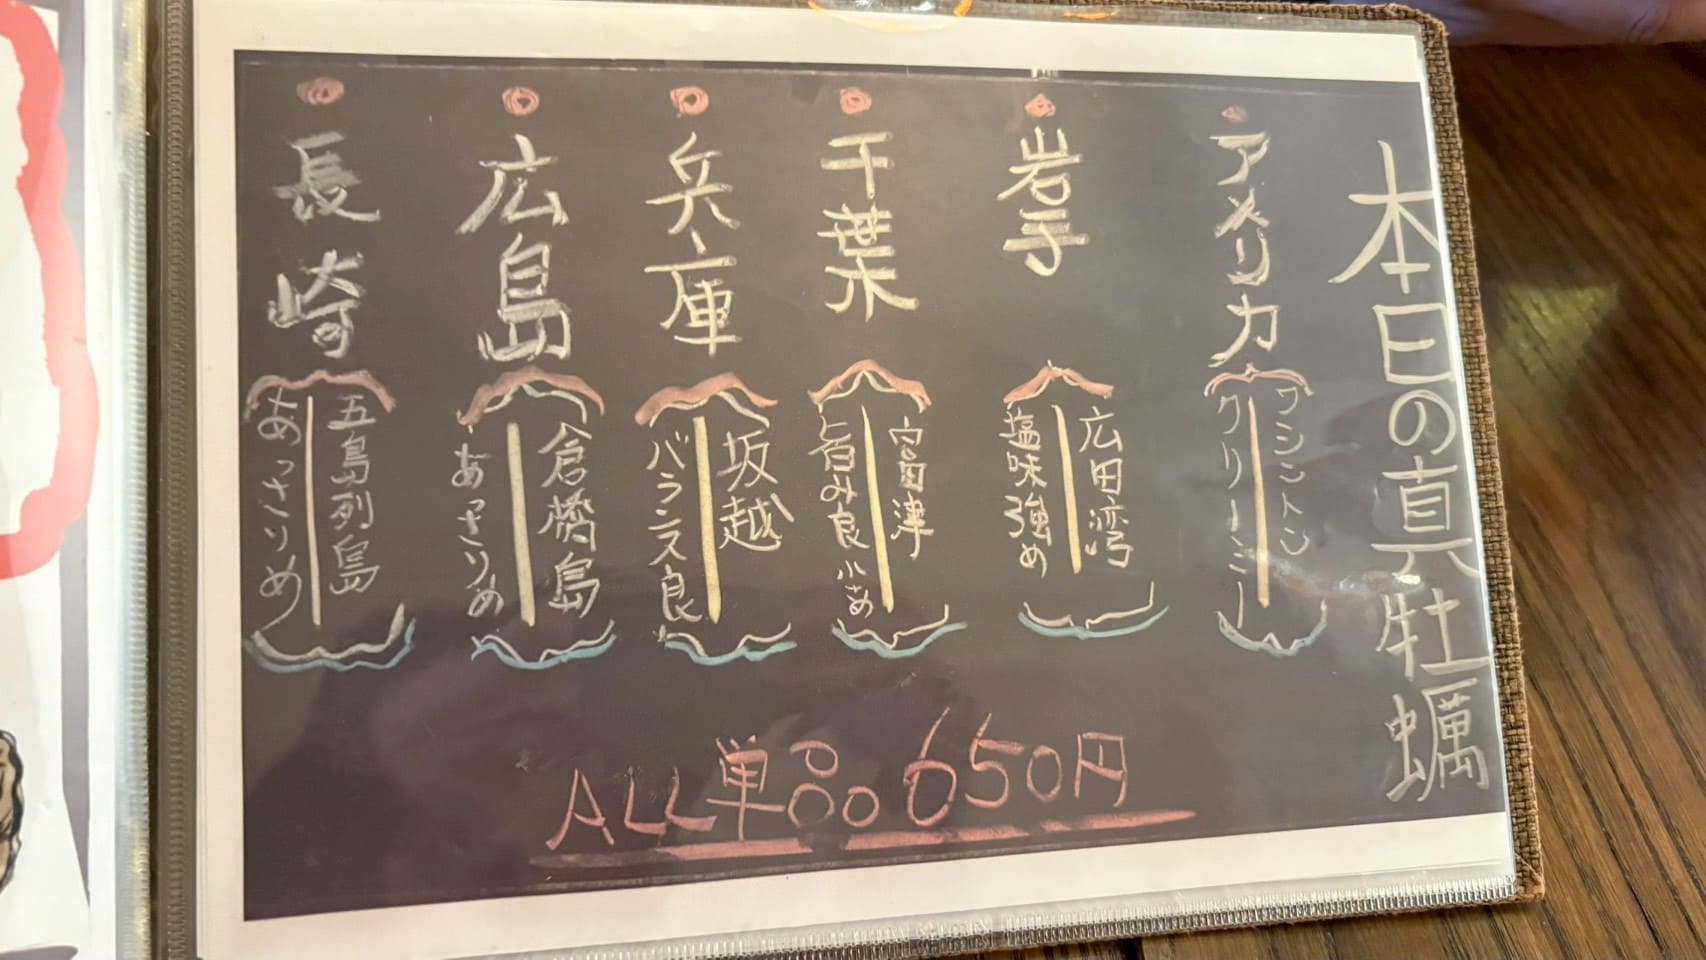 本日の真牡蠣
アメリカ
ワシントン
クリーミー
岩手
広田湾
塩味強め
千葉
富津
旨み良 小さめ
兵庫
坂越
バランス良
広島
倉橋島
あっさりめ
長崎
五島列島
あっさりめ
ALL単品650円